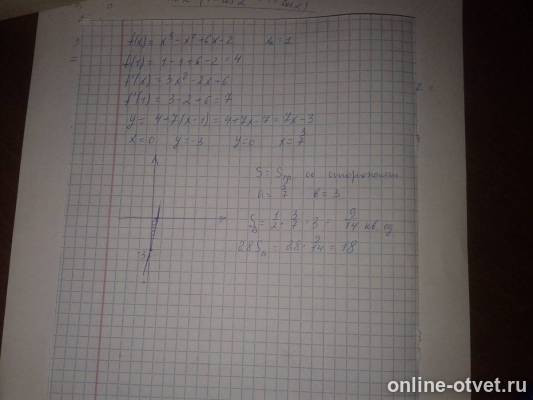 f(x) = x³ - x² + 6x - 2 x₀ = 1
f(1) = 1 - 1 + 6 - 2 = 4
f'(x) = 3x² - 2x + 6
f'(1) = 3 - 2 + 6 = 7
y = 4 + 7(x - 1) = 4 + 7x - 7 = 7x - 3
x = 0 y = -3 y = 0 x = 3/7
S = Sтр со сторонами
a = 3/7 b = 3
S△ = 1/2 · 3/7 · 3 = 9/14 кв ед
28S△ = 28 · 9/14 = 18
-3
online-otvet.ru